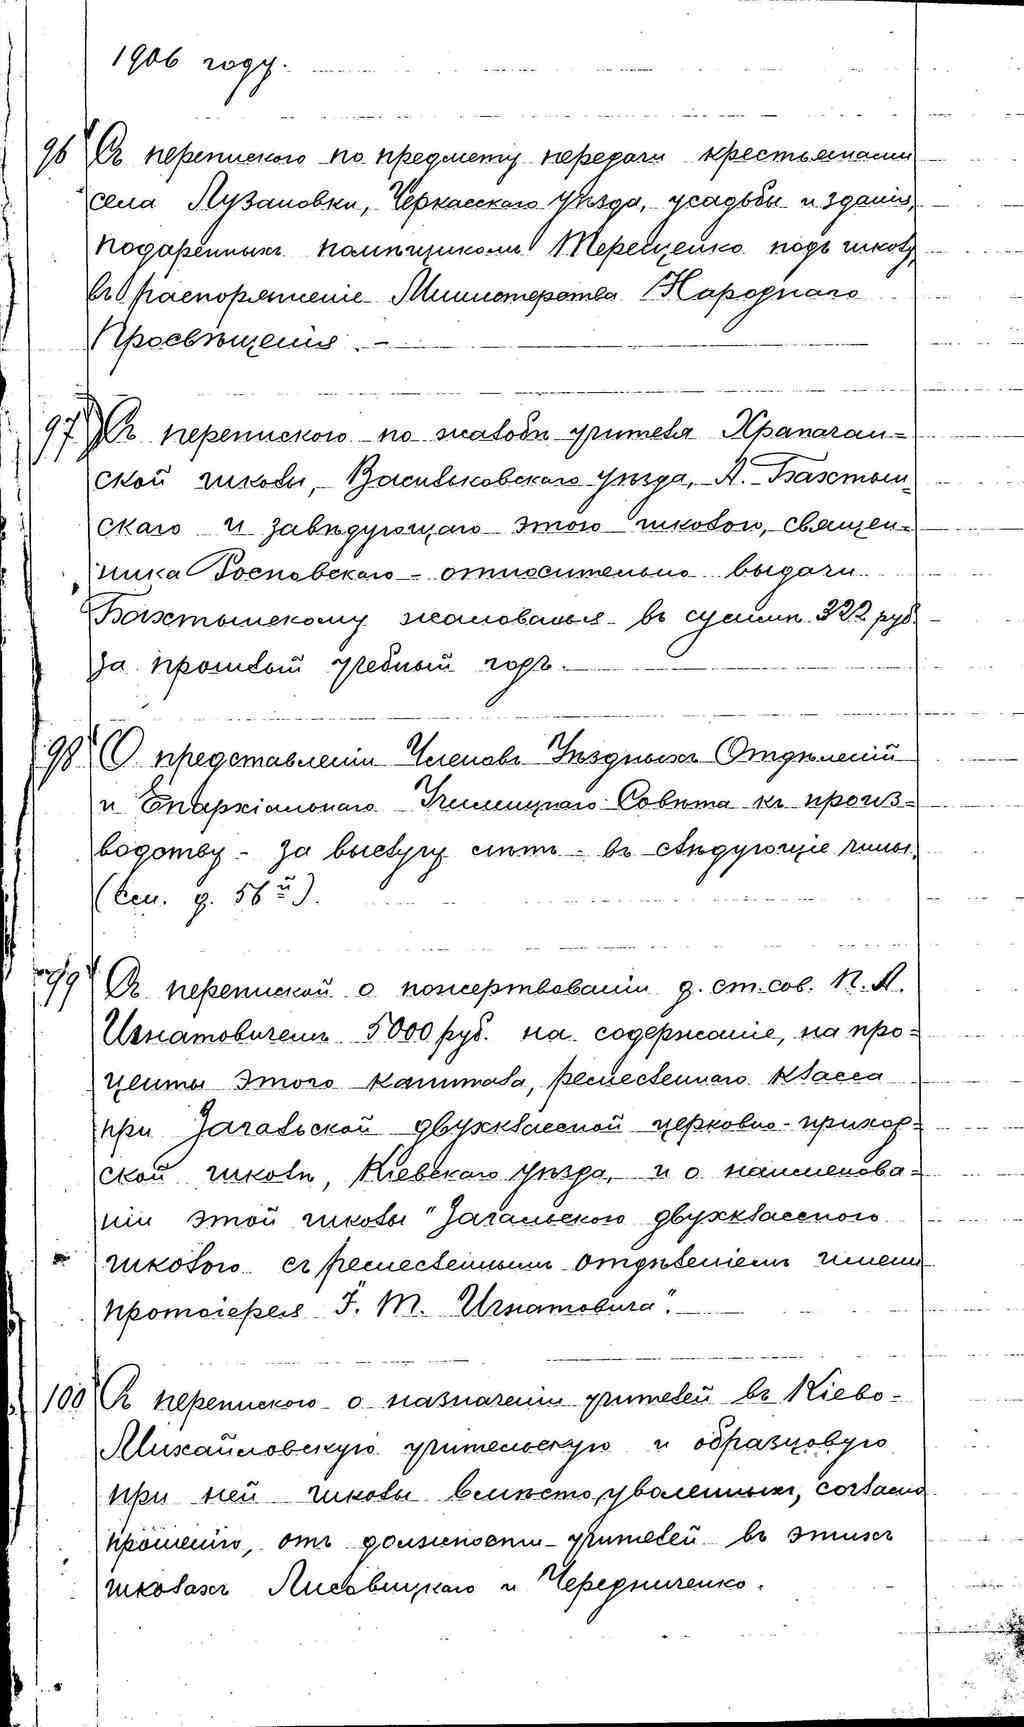 1906 году.
96 Съ перепискою по предмету передачи крестьянами
села Лузановки, Черкасскаго уѣзда, усадьбы и зданія,
подаренныхъ помѣщикомъ Терещенко подъ школу,
въ распоряженіе Министерства Народнаго
Просвѣщенія. –
97 Съ перепискою по жалобѣ учителя Храпачан=
ской школы, Васильковскаго уѣзда, А. Бахтын=
скаго и завѣдующаго этою школою, священ=
ника Росповскаго – относительно выдачи
Бахтынскому жалованья въ суммѣ 322 руб.
за прошлый учебный годъ. –
98 О представленіи Членовъ Уѣздныхъ Отдѣленій
и Епархіальнаго Училищнаго Совѣта къ произ=
водству – за выслугу лѣтъ – въ слѣдующіе чины.
(См. д. 56й).
99 Съ перепиской о пожертвованіи д. ст. сов. П. А.
Игнатовичемъ 5000 руб. на содержаніе, на про=
центы этого капитала, ремесленнаго класса
при Загальской двухклассной церковно-приход=
ской школѣ, Кіевскаго уѣзда, и о наименова=
ніи этой школы "Загальскою двухклассною
школою съ ремесленнымъ отдѣленіемъ имени
протоіерея І. Т. Игнатовича". –
100 Съ перепискою о назначеніи учителей въ Кіево-
Михайловскую учительскую и образцовую
при ней школы вмѣсто уволенныхъ, согласно
прошенію, отъ должности учителей въ этихъ
школахъ Лисовицкаго и Чередниченко.